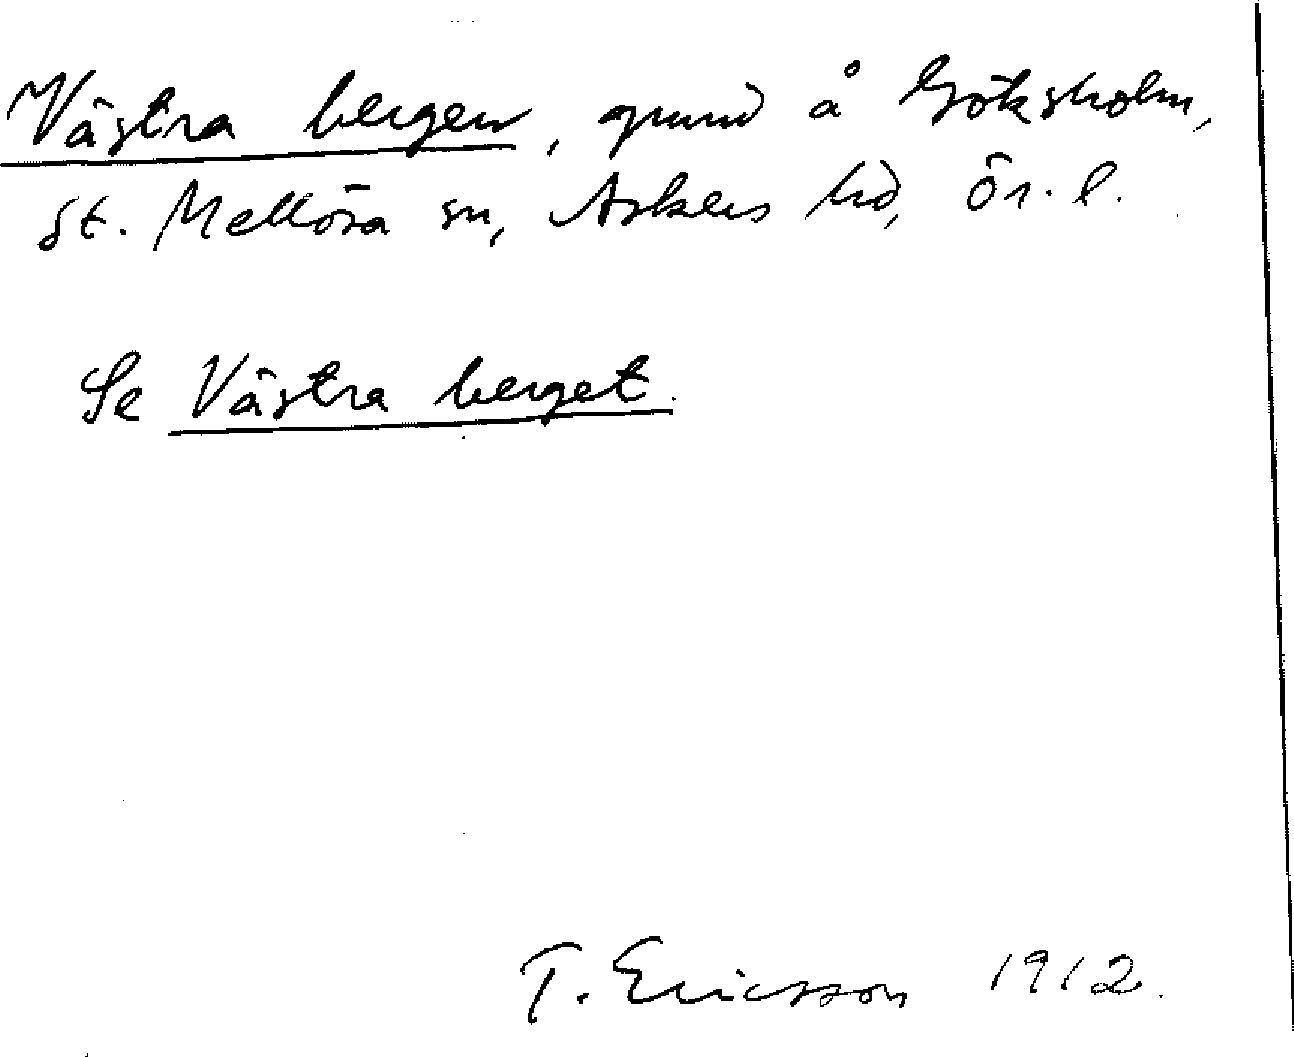 Västra bergen, grund å Göksholm,
St. Mellösa sn, Askers hd, Ör. l.
Se Västra berget.
T. Ericsson 1912.